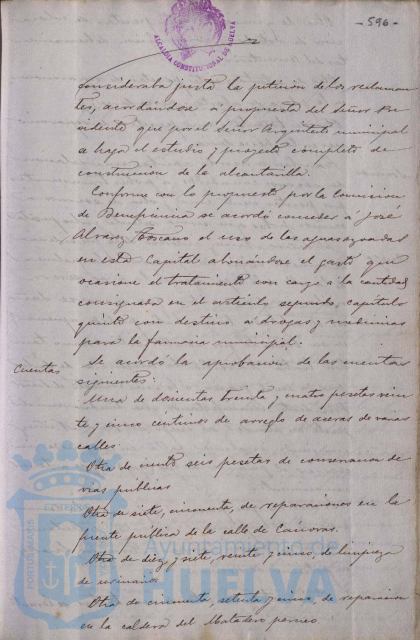 ALCALDIA CONSTITUCIONAL DE HUELVA
- 596 -
consideraba justa la petición de los reclaman
tes, acordándose á propuesta del Señor Pre
sidente que por el Señor Arquitecto municipal
se haga el estudio y proyecto completo de
construcción de la alcantarilla.
Conforme con lo propuesto por la Comisión
de Beneficencia se acordó conceder á José
Alvarez Toscano el uso de las aguas azoadas
en esta Capital abonándose el gasto que
ocasione el tratamiento con cargo á la cantidad
consignada en el artículo segundo, capítulo
quinto con destino á drogas y medicinas
para la farmacia municipal.
Cuentas
Se acordó la aprobación de las cuentas
siguientes:
Una de doscientas treinta y cuatro pesetas vein
te y cinco céntimos de arreglo de aceras de varias
calles.
Otra de ciento seis pesetas de conservación de
vías públicas
Otra de siete, cincuenta, de reparaciones en la
fuente pública de la calle de Cánovas.
Otra de diez y siete, veinte y cinco, de limpieza
de urinarios
Otra de cincuenta, setenta y cinco, de reparación
en la caldera del Matadero
PORTUS MARIS
Ayuntamiento de
HUELVA